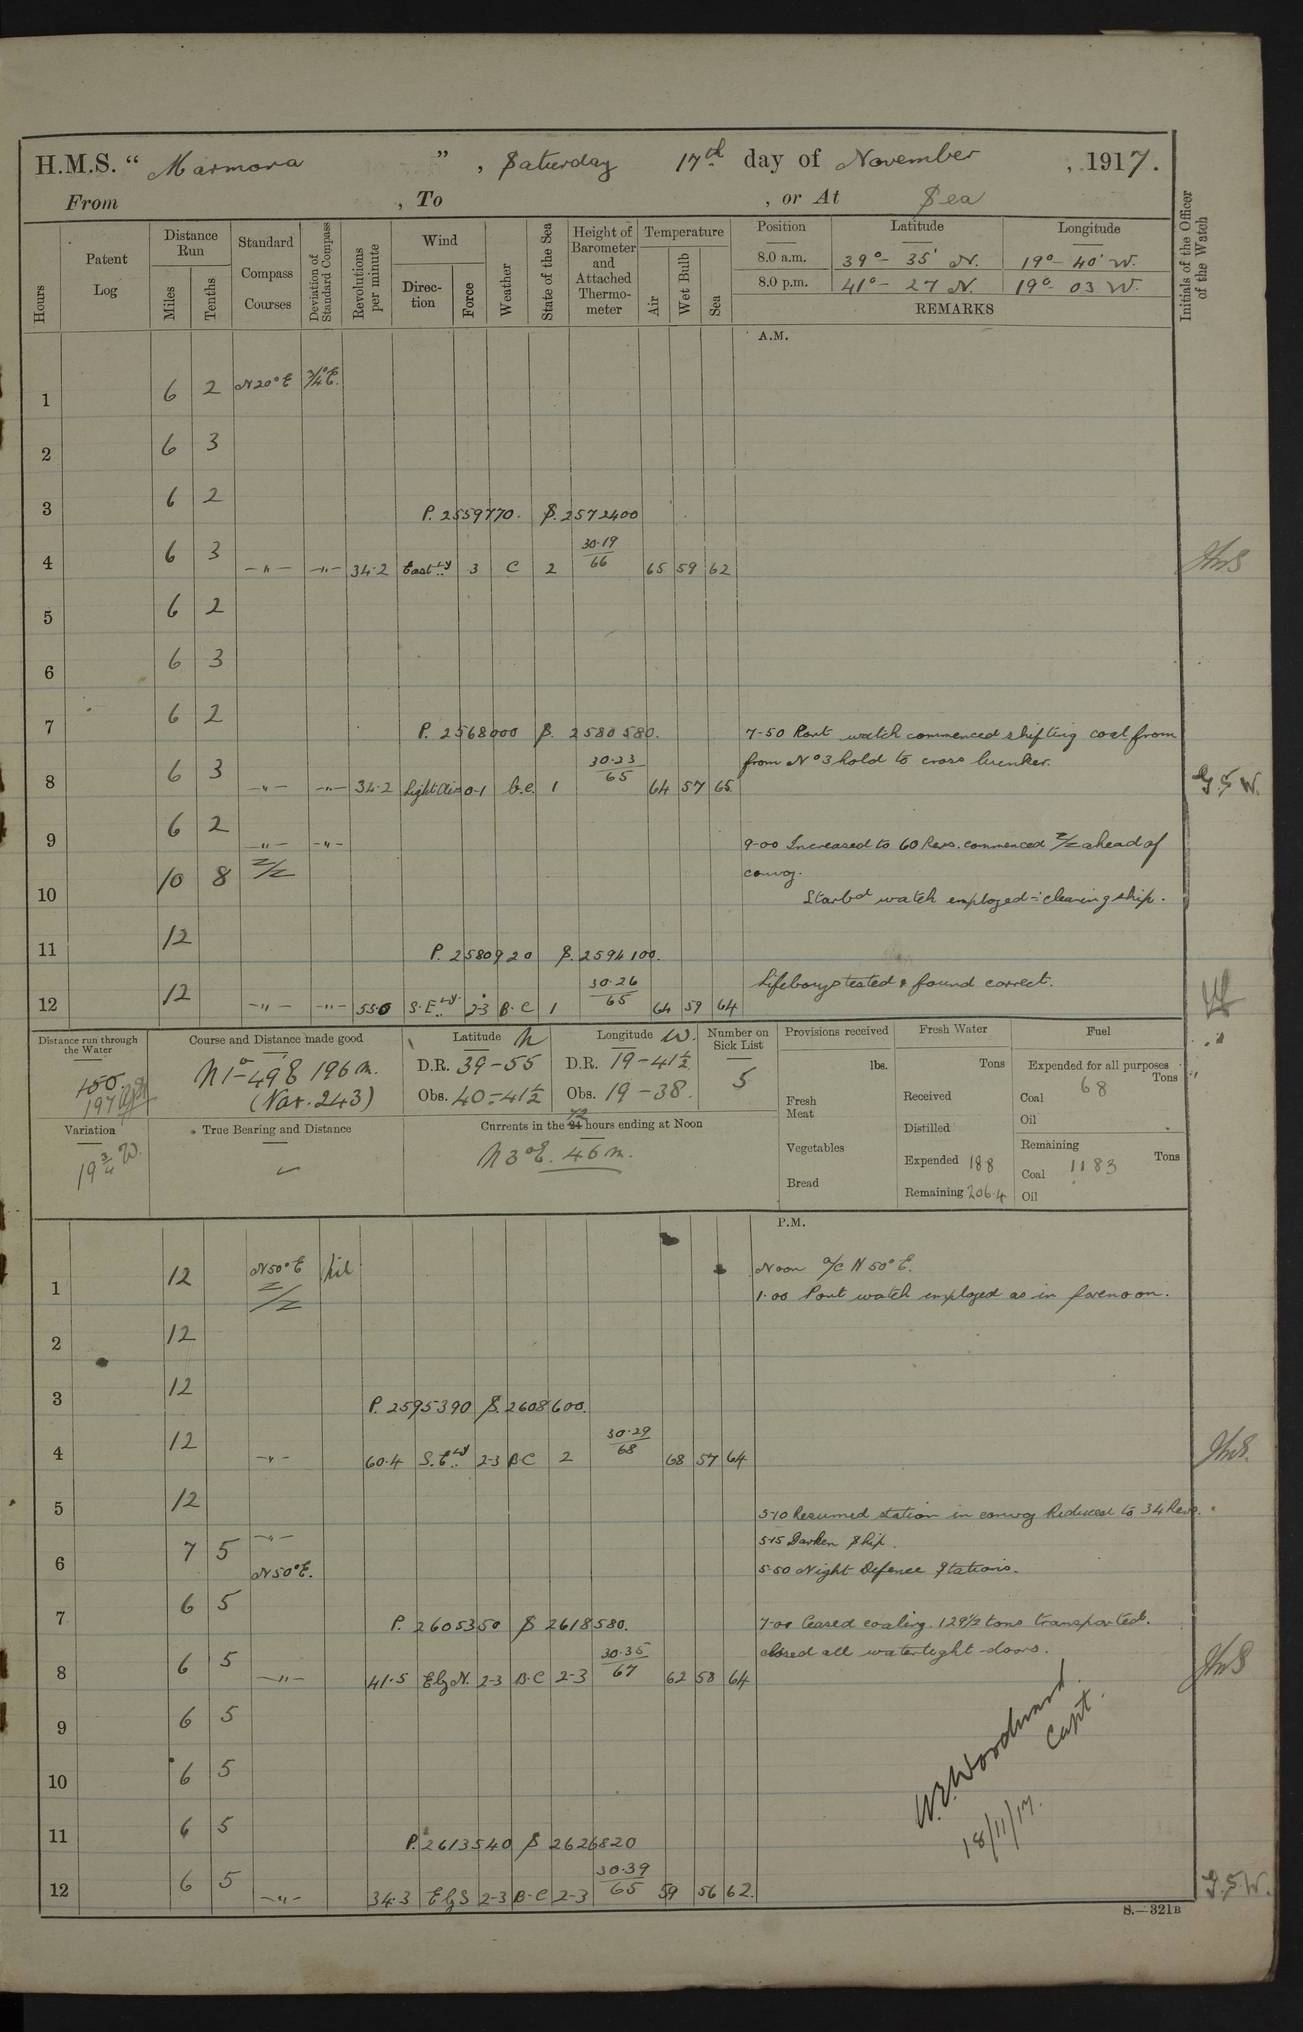 H.M.S. “ Marmora ” , Saturday 17th day of November , 1917.
From , To , or At Sea
Hours
Patent Log
Distance Run
Miles
Tenths
Standard Compass Courses
Deviation of Standard Compass
Revolutions per minute
Wind
Direction
Force
Weather
State of the Sea
Height of Barometer and Attached Thermometer
Temperature
Air
Wet Bulb
Sea
Position Latitude Longitude
8.0 a.m. 39° - 35' N. 19° - 40' W.
8.0 p.m. 41° - 27 N. 19° - 03 W.
REMARKS
Initials of the Officer of the Watch
A.M.
1 6 2 N20°E 3/4°E.
2 6 3
3 6 2
P. 2559770. S. 2572400
4 6 3 -"- -"- 34.2 Eastly 3 C 2 30.19/66 65 59 62
5 6 2
6 6 3
7 6 2
P. 2568000 S. 2580580.
7-50 Port watch commenced shifting coal from
from No 3 hold to cross bunker.
8 6 3 -"- -"- 34.2 Light Air 0-1 b.c. 1 30.23/65 64 57 65 G.S.W.
9 6 2 -"- -"-
9-00 Increased to 60 Revs. commenced Z/Z ahead of
convoy.
10 10 8 Z/Z
Starbd watch employed :- cleaning ship.
11 12
P. 2580920 S. 2594100.
Lifebuoys tested & found correct.
12 12 -"- -"- 55.0 S.Ely. 2-3 B.C 1 30.26/65 64 59 64
Distance run through the Water
150.
197
Course and Distance made good
N 1°-49 E 196 m.
(Var. 243)
Latitude N
D.R. 39-55
Obs. 40-41½
Longitude W.
D.R. 19-41½
Obs. 19-38.
Number on Sick List
5
Provisions received
lbs.
Fresh Meat
Vegetables
Bread
Fresh Water
Tons
Received
Distilled
Expended 188
Remaining 206.4
Fuel
Expended for all purposes
Tons
Coal 68
Oil
Remaining
Tons
Coal 1183
Oil
Variation
19¾ W.
True Bearing and Distance
Currents in the 24 72 hours ending at Noon
N 3°E. 46 m.
P.M.
1 12 N50°E Z/Z Nil
Noon a/c N 50° E.
1.00 Port watch employed as in forenoon.
2 12
3 12
P. 2595390 S. 2608600.
4 12 -"- 60.4 S.Ely 2-3 B.C 2 30.29/68 68 57 64
5 12
5-10 Resumed station in convoy Reduced to 34 Revs.
6 7 5 -"- N50°E.
5-15 Darken Ship.
5-50 Night Defence Stations.
7 6 5
P. 2605350 S 2618580.
7-00 Ceased coaling. 129½ tons transported.
closed all watertight doors.
8 6 5 -"- 41.5 E by N. 2-3 B.C 2-3 30.35/67 62 58 64
9 6 5
10 6 5
11 6 5
P. 2613540 S 2626820
12 6 5 -"- 34.3 E by S 2-3 B.C 2-3 30.39/65 59 56 62. G.S.W.
W.E. Woodward
Capt.
18/11/17.
S.—321B